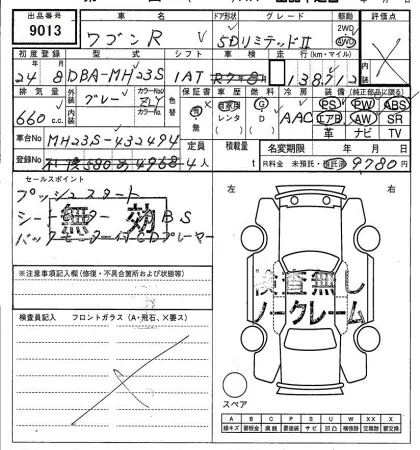 出品番号 車名 ドア形状 グレード 駆動 評価点
9013 ワゴンR 5D リミテッドⅡ 2WD 4WD
初度登録 型式 シフト 車検 走行(km・マイル)
24年 8月 DBA-MH23S 1AT 138,712
排気量 外装 グレー カラーNo. ZLY 色替 保証書 車歴 燃料 冷房 装備(純正部品に限る)
660 c.c. 内装 カラーNo. 有・無 自家用 レンタ G D AAC PS PW ABS
エアB AW SR
革 ナビ TV
車台No MH23S-432494 定員 積載量 名変期限 年 月 日
登録No 4人 t R料金 未預託・預託済 9780円
セールスポイント
プッシュスタート
無効
バックモニター付CDプレーヤー
左 右
検査無し
ノークレーム
※注意事項記入欄(修復・不具合箇所および状態等)
検査員記入 フロントガラス(A・飛石、X要ス)
スペア
A B C P S U W X XX
線キズ 要板金 腐蝕 要塗装 サビ 凹凸 補修跡 交換跡 要交換